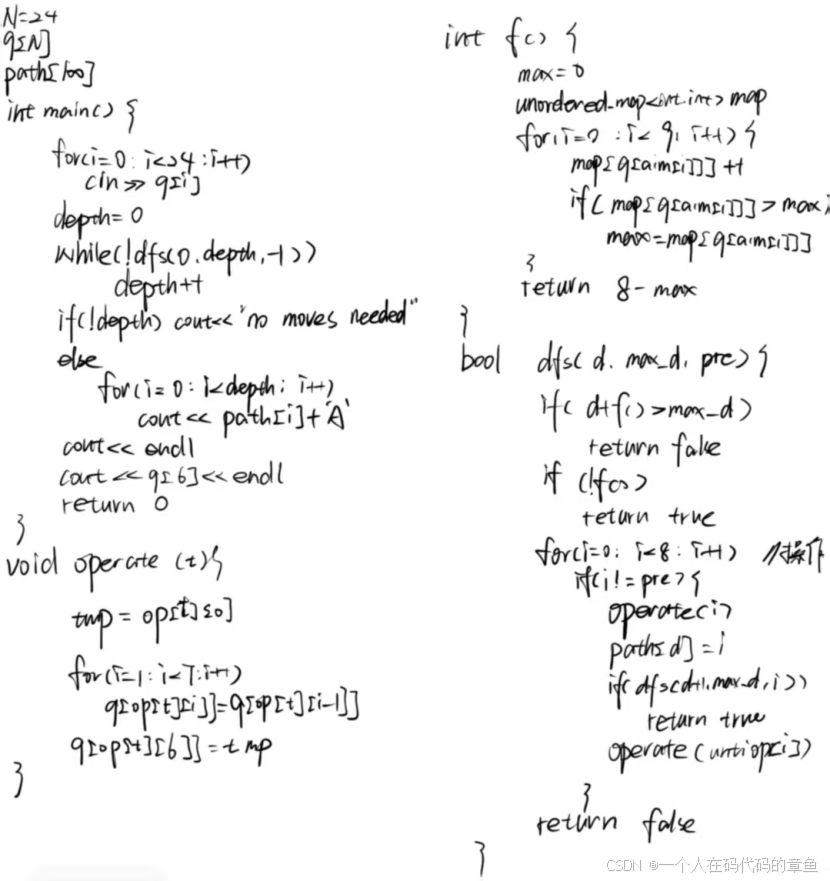 N=24
q[N]
path[100]
int main() {
for(i=0; i<24; i++)
cin >> q[i]
depth=0
while(!dfs(0,depth,-1))
depth++
if(!depth) cout<<"no moves needed"
else
for(i=0; i<depth; i++)
cout << path[i]+'A'
cout<< endl
cout << q[6]<<endl
return 0
}
void operate (t){
tmp = op[t][0]
for(i=1; i<7; i++)
q[op[t][i]]=q[op[t][i-1]]
q[op[t][6]]=tmp
}
int f() {
max=0
unordered_map<int,int> map
for(i=0; i<9; i++){
map[q[aim[i]]]++
if( map[q[aim[i]]]>max)
max=map[q[aim[i]]]
}
return 8-max
}
bool dfs( d, max_d, pre){
if( d+f()>max_d)
return false
if (!f())
return true
for(i=0; i<8; i++) //操作
if(i!=pre){
operate(i)
path[d]=i
if(dfs(d+1,max_d,i))
return true
operate(untiop[i])
}
return false
}
CSDN @一个人在码代码的章鱼